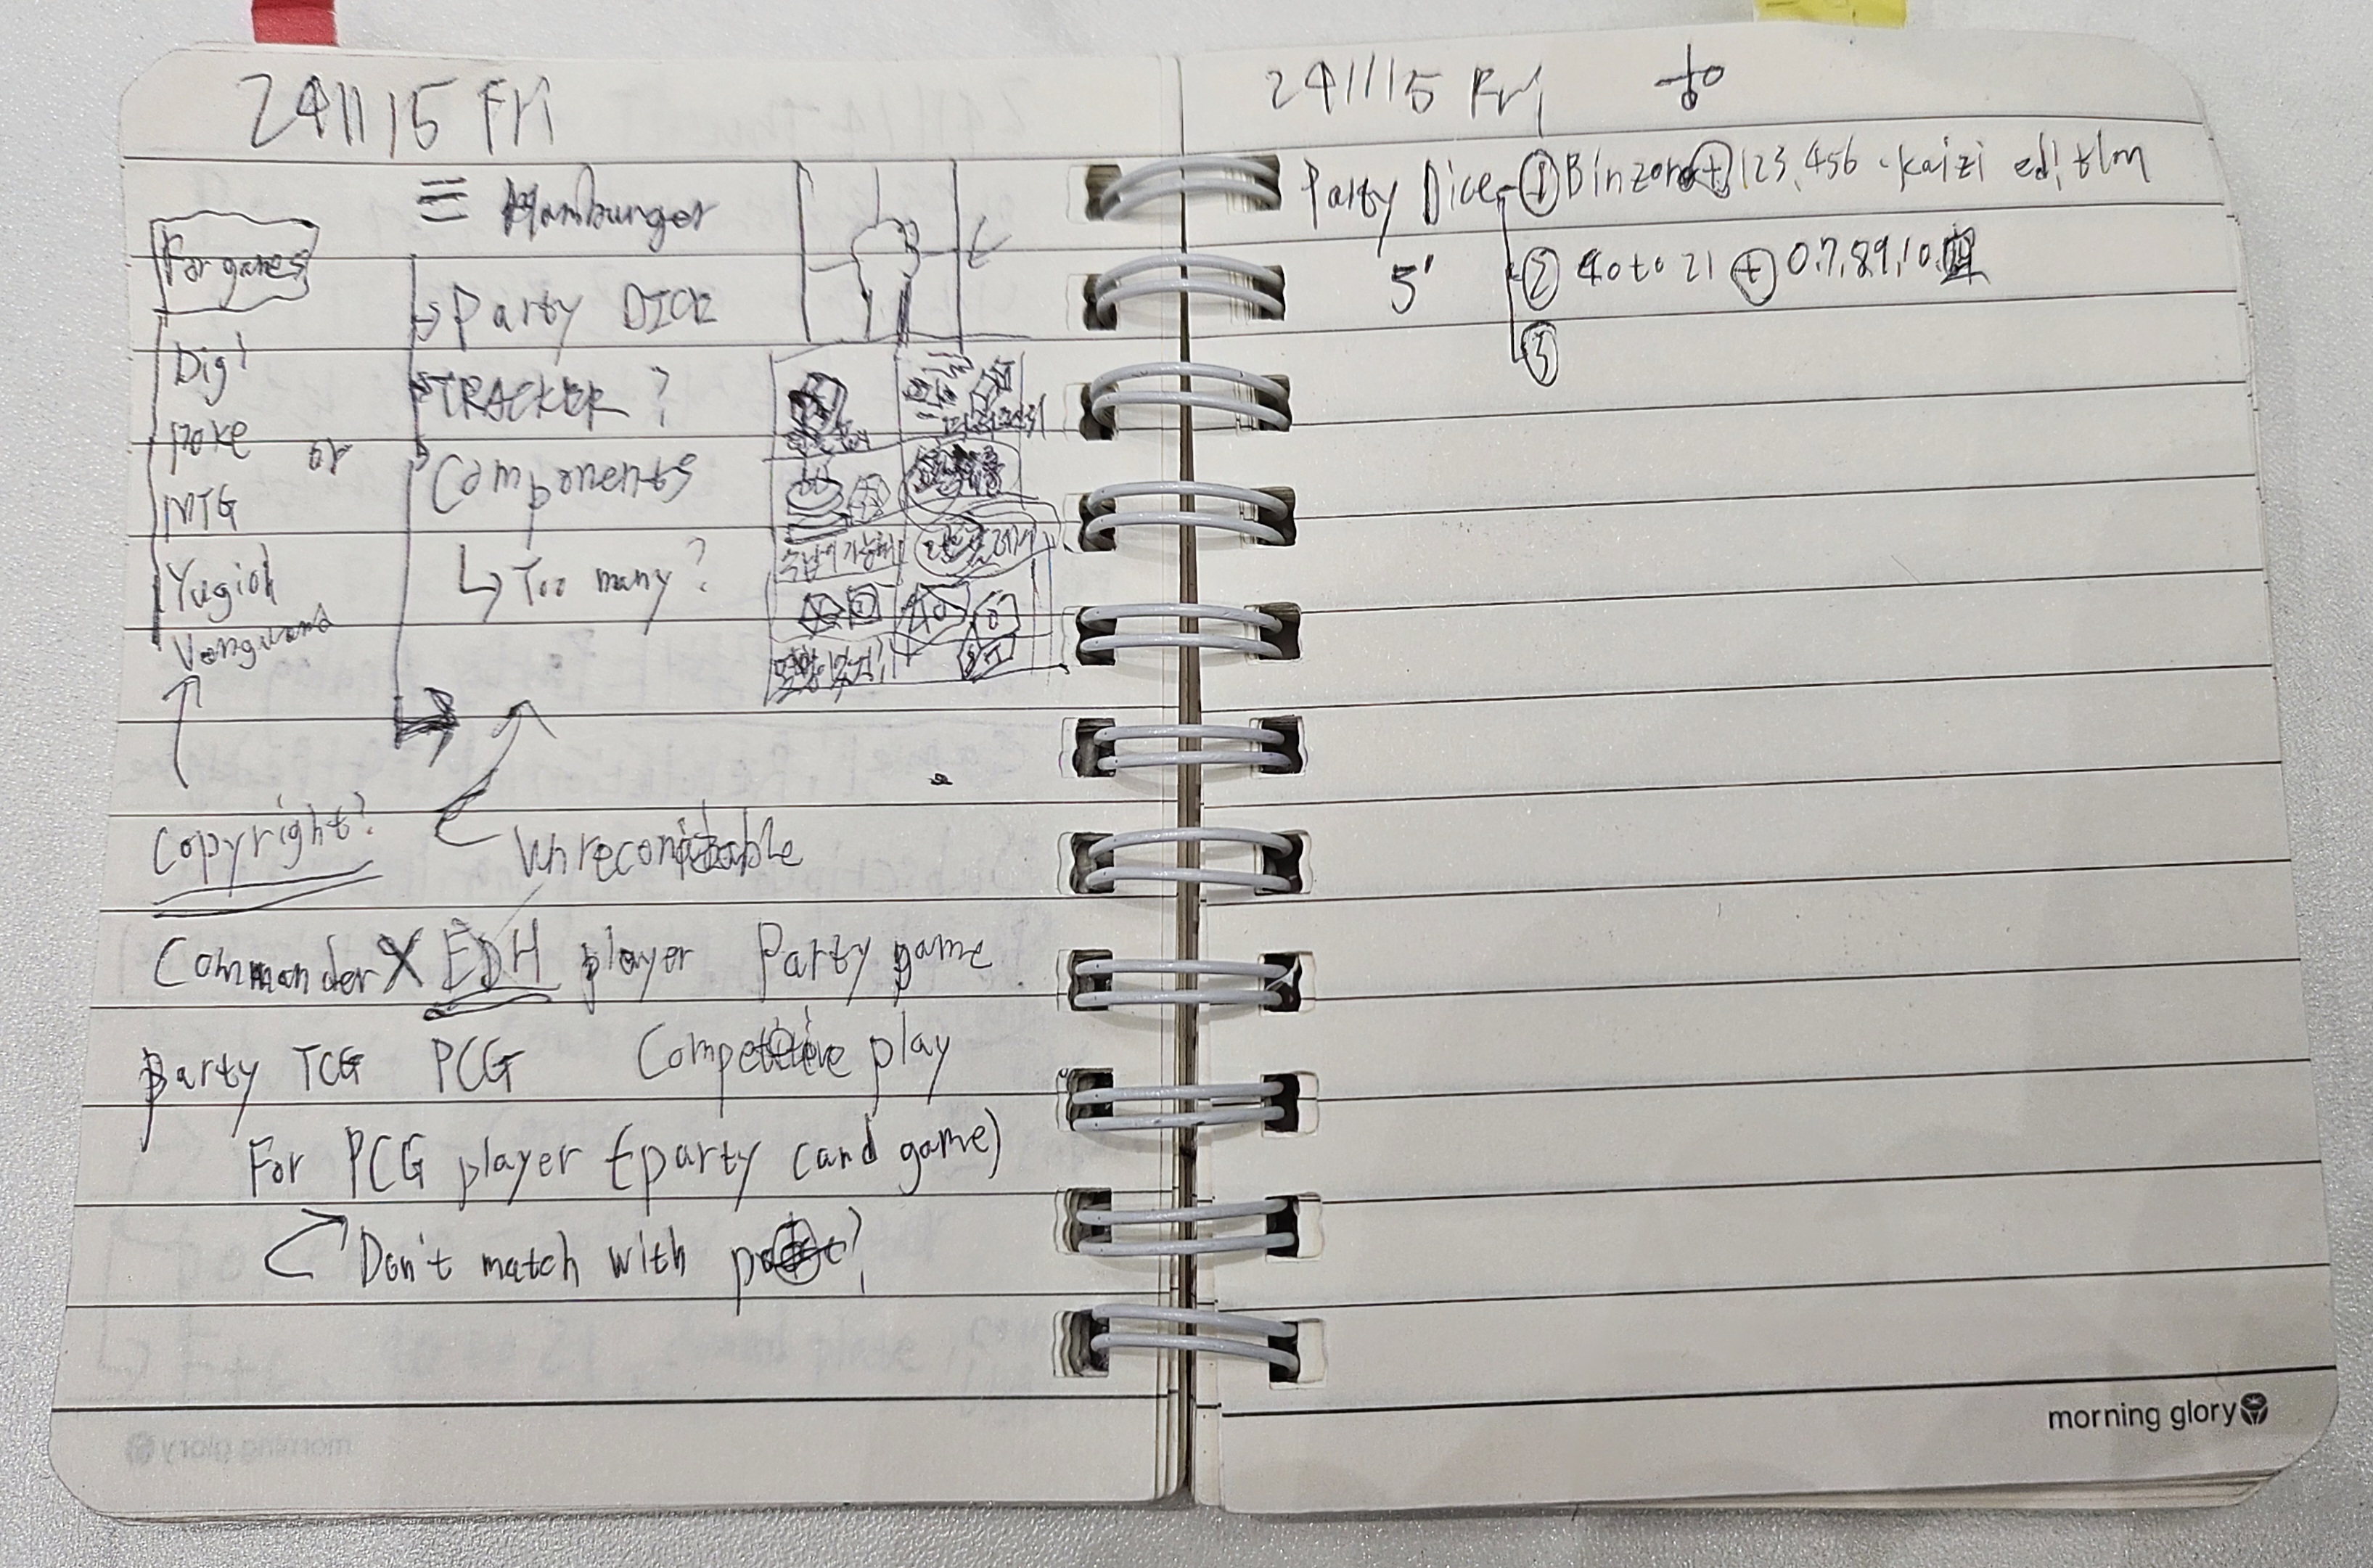 241115 Fri
≡ Hamburger
For games
→ Party DICE
Digi
TRACKER ?
Poke or
Components
MTG
수납이 가능해!
↳ Too many ?
Yugioh
Vanguard
Copyright?
Commander X EDH player Party game
Party TCG PCG Competitive play
For PCG player (party card game)
Don't match with
241115 Fri
Party Dice ① 123,456
5' ② 40 to 21 + 0.7,8,9,10
③
morning glory